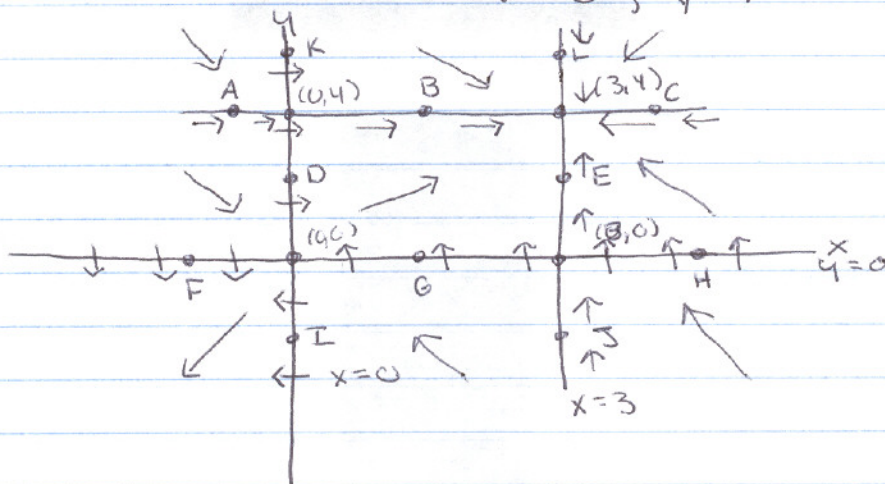 y
K
L
A
(0,4)
B
(3,4)
C
D
E
(0,0)
(3,0)
x
y=0
F
G
H
I
J
x=0
x=3